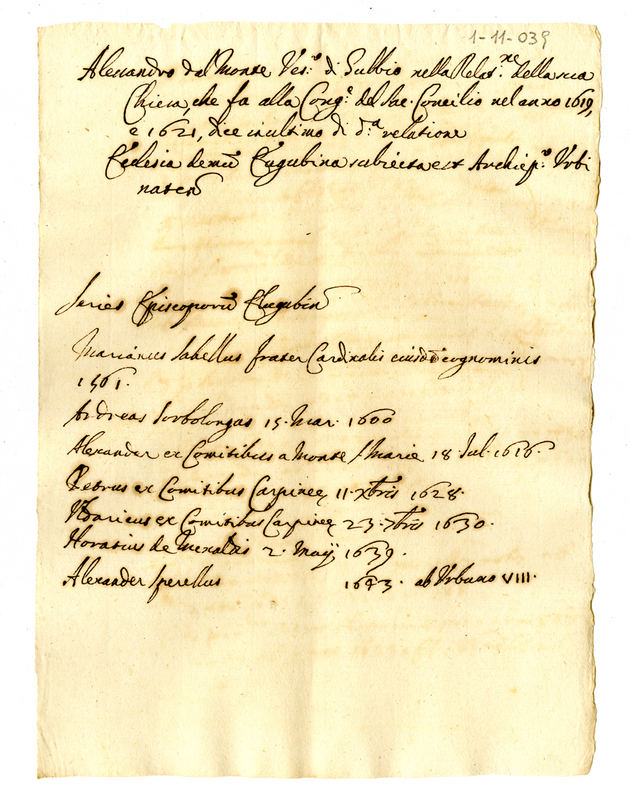 1-11-039
Alessandro dal Monte Ves.º di Gubbio nella Relat.ne della sua
Chiesa, che fa alla Cong.e del Sac. Concilio nel anno 1619,
e 1621, dice in ultimo di d.ª relatione
Ecclesia demū Eugubina subiecta est Archiep.º Urbi
naten
Series Episcoporū Eugubin
Marianus Sabellus frater Cardinalis eiusdē cognominis
1561.
Andreas Sorbolongus 15. Mar. 1600
Alexander ex Comitibus a Monte S. Marie 18 Jul. 1616.
Petrus ex Comitibus Carpineę 11. Xbris 1628.
Uldaricus ex Comitibus Carpineę 23. 7bris 1630.
Horatius de 2. Maij 1639.
Alexander Sperellus 1643. ab Urbano VIII.